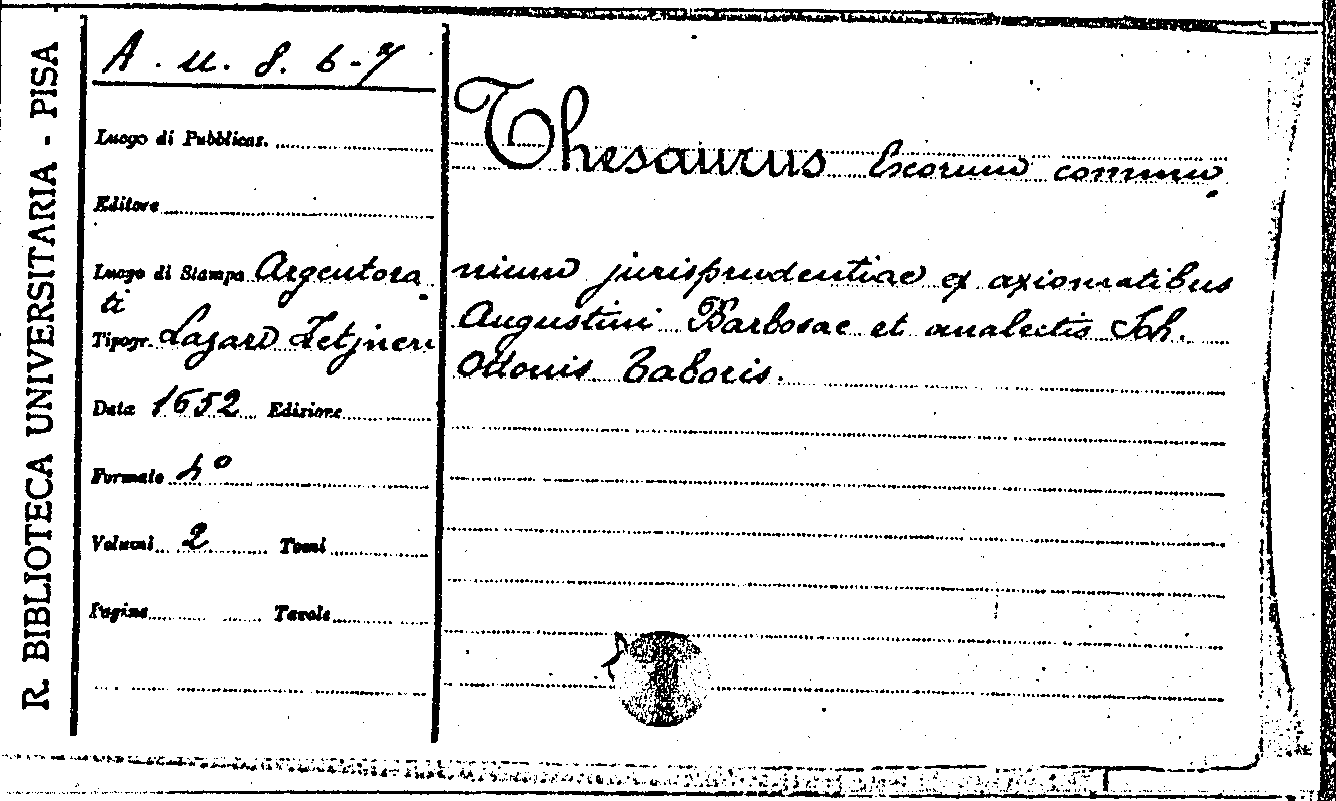 R. BIBLIOTECA UNIVERSITARIA - PISA
A . u. 8. 6-7
Luogo di Pubblicaz.
Editore
Luogo di Stampa Argentora-
ti
Tipogr. Lazari Zetzneri
Data 1652 Edizione
Formato 4º
Volumi 2 Tomi
Pagine Tavole
Thesaurus locorum commu-
nium jurisprudentiae ex axiomatibus
Augustini Barbosae et analectis Joh.
Ottonis Taboris.